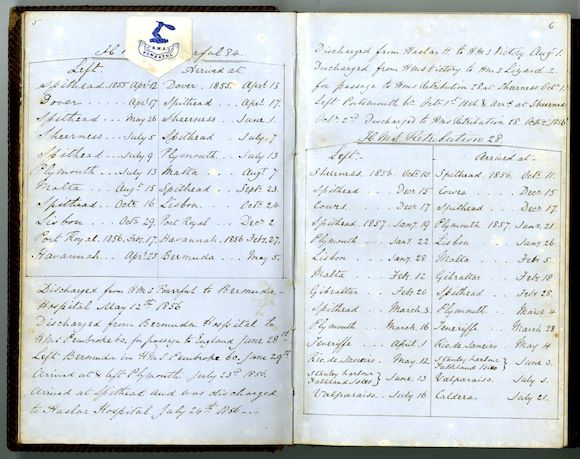 5
H.M.S.
POWERFUL
H.M.S. Powerful 84.
Left. Arrived at.
Spithead. 1855 Apr. 12 Dover. 1855 April 13
Dover. Apr. 17 Spithead April 17.
Spithead May 26 Sheerness June 1.
Sheerness July 5 Spithead July 7.
Spithead July 9 Plymouth July 13
Plymouth July 13 Malta Augt. 7
Malta Augt. 15 Spithead Septr. 23.
Spithead Octr. 16 Lisbon Octr. 24
Lisbon Octr. 29. Port Royal Decr. 2
Port Royal 1856. Feby. 17. Havannah. 1856 Feby. 27.
Havannah. Apr. 25 Bermuda May 5.
Discharged from HMS Powerful to Bermuda
Hospital May 12th 1856
Discharged from Bermuda Hospital to
HMS Pembroke 60. for passage to England June 28th
Left Bermuda in HMS Pembroke 60. June 29th
Arrived at & left Plymouth July 23rd 1856.
Arrived at Spithead and was discharged
to Haslar Hospital July 24th 1856
6
Discharged from Haslar H. to HMS Victory Augt. 1.
Discharged from HMS Victory to HMS Lizard. 2.
for passage to HMS Retribution 28 at Sheerness Octr. 1.
Left Portsmouth Hr. Octr. 1st 1856 & Arrd. at Sheerness
Octr. 2nd Discharged to HMS Retribution 28. Octr. 2nd 1856
HMS Retribution 28.
Left. Arrived at.
Sheerness. 1856. Octr. 10 Spithead 1856. Octr. 11.
Spithead Decr. 15 Cowes. Decr. 15
Cowes. Decr. 17 Spithead Decr. 17.
Spithead 1857. Jany. 19 Plymouth 1857. Jany. 21
Plymouth Jany. 22 Lisbon Jany. 26.
Lisbon Jany. 28 Malta Feby. 5.
Malta Feby. 12 Gibraltar Feby. 18.
Gibraltar Feby. 20 Spithead Feby. 28.
Spithead March. 3 Plymouth March. 4
Plymouth March. 16 Teneriffe March 28
Teneriffe April. 1 Rio de Janeiro May 4
Rio de Janeiro May. 12. Stanley harbour Falkland Isles June 3.
Stanley harbour Falkland Isles June. 13 Valparaiso. July 5.
Valparaiso. July 16 Caldera. July 21.